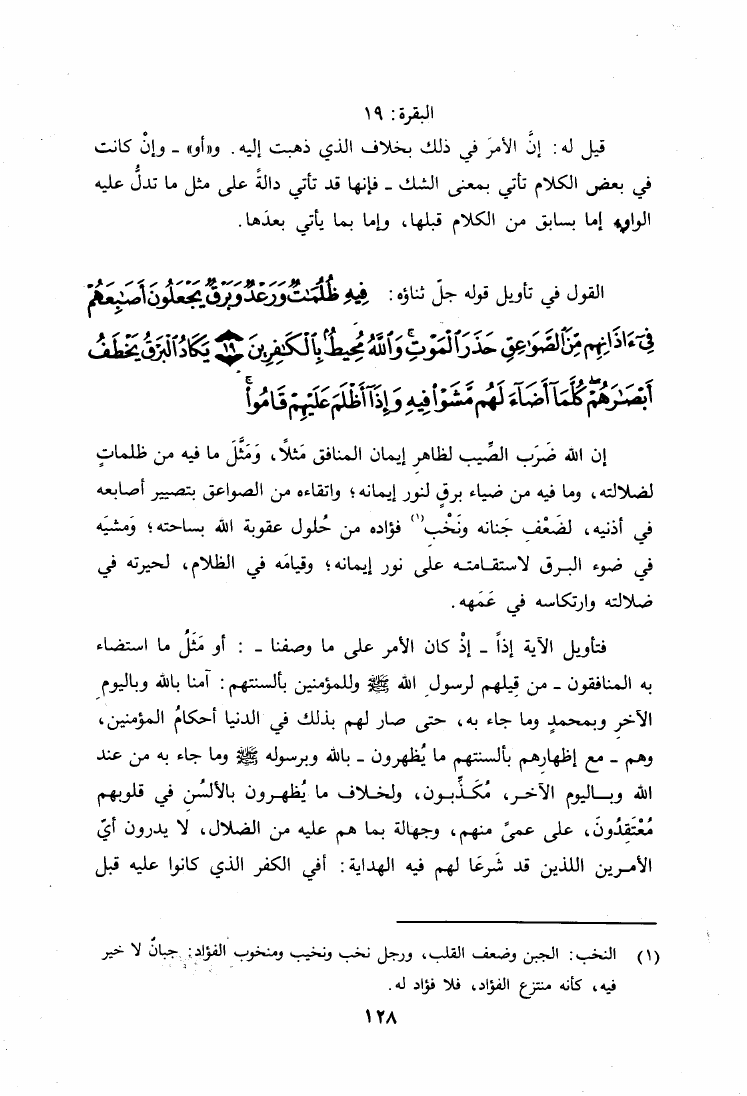 البقرة: ١٩
قيل له: إنَّ الأمرَ في ذلك بخلاف الذي ذهبت إليه. و«أو» ـ وإنْ كانت
في بعض الكلام تأتي بمعنى الشك ـ فإنها قد تأتي دالةً على مثل ما تدلُّ عليه
الواو، إما بسابق من الكلام قبلها، وإما بما يأتي بعدَها.
القول في تأويل قوله جلّ ثناؤه: فِيهِ ظُلُمَٰتٌ وَرَعْدٌ وَبَرْقٌ يَجْعَلُونَ أَصَٰبِعَهُمْ
فِىٓ ءَاذَانِهِم مِّنَ ٱلصَّوَٰعِقِ حَذَرَ ٱلْمَوْتِ ۚ وَٱللَّهُ مُحِيطٌۢ بِٱلْكَٰفِرِينَ ١٩ يَكَادُ ٱلْبَرْقُ يَخْطَفُ
أَبْصَٰرَهُمْ ۖ كُلَّمَآ أَضَآءَ لَهُم مَّشَوْا۟ فِيهِ وَإِذَآ أَظْلَمَ عَلَيْهِمْ قَامُوا۟ ۚ
إن الله ضَرَب الصِّيب لظاهرِ إيمان المنافق مَثلاً، وَمَثَّلَ ما فيه من ظلماتٍ
لضلالته، وما فيه من ضياء برقٍ لنور إيمانه؛ واتقاءه من الصواعق بتصيير أصابعه
في أذنيه، لضَعْفِ جَنانه ونَخْبِ(١) فؤاده من حُلول عقوبة الله بساحته؛ وَمشيَه
في ضوء البرق لاستقامته على نور إيمانه؛ وقيامَه في الظلام، لحيرته في
ضلالته وارتكاسه في عَمَهه.
فتأويل الآية إذاً ـ إذْ كان الأمر على ما وصفنا ـ : أو مَثَلُ ما استضاء
به المنافقون ـ من قِيلهم لرسول الله ﷺ وللمؤمنين بألسنتهم: آمنا بالله وباليوم
الآخرِ وبمحمدٍ وما جاء به، حتى صار لهم بذلك في الدنيا أحكامُ المؤمنين،
وهم ـ مع إظهارهم بألسنتهم ما يُظهرون ـ بالله وبرسوله ﷺ وما جاء به من عند
الله وباليوم الآخر، مُكَذِّبون، ولخلاف ما يُظهرون بالألسُن في قلوبهم
مُعْتَقِدُونَ، على عمىً منهم، وجهالة بما هم عليه من الضلال، لا يدرون أيّ
الأمرين اللذين قد شَرعَا لهم فيه الهداية: أفي الكفر الذي كانوا عليه قبل
(١) النخب: الجبن وضعف القلب، ورجل نخب ونخيب ومنخوب الفؤاد: جبانٌ لا خير
فيه، كأنه منتزع الفؤاد، فلا فؤاد له.
١٢٨